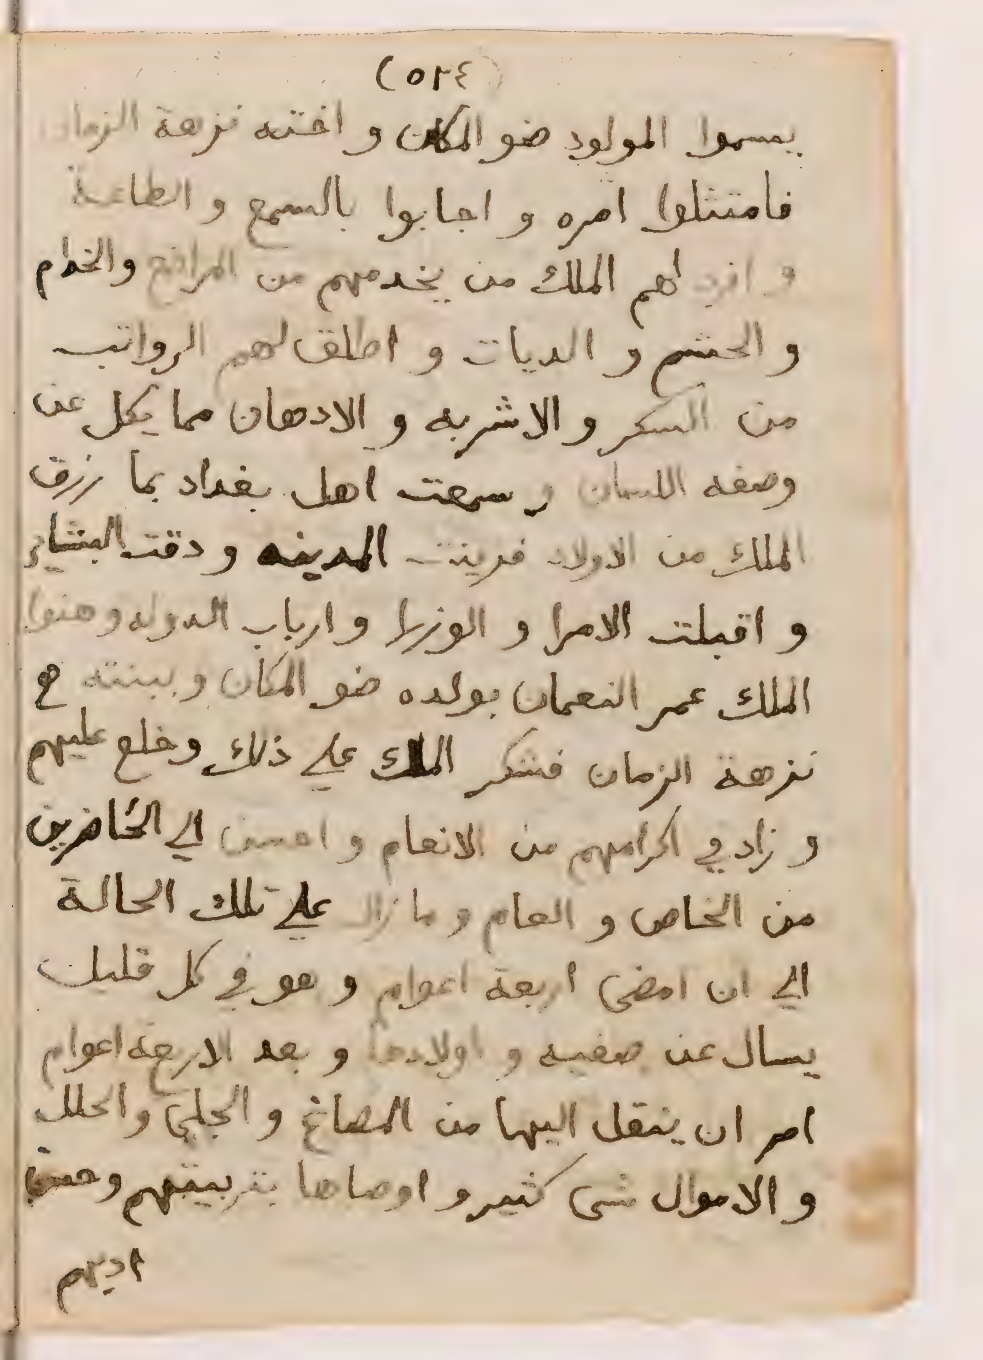 (٥٢٤)
يسموا المولود ضو المكان و اخته نزهة الزمان
فامتثلوا امره و اجابوا بالسمع و الطاعة
و افرد لهم الملك من يخدمهم من المراضع والخدام
و الحشم و الديات و اطلق لهم الرواتب
من السكر و الاشربه و الادهان مما يكل عن
وصفه اللسان و سمعت اهل بغداد بما رزق
الملك من الاولاد فزينت المدينه و دقت البشاير
و اقبلت الامرا و الوزرا و ارباب الدوله و هنوا
الملك عمر النعمان بولده ضو المكان و ببنته
نزهة الزمان فشكر الملك علي ذلك وخلع عليهم
و زاد في اكرامهم من الانعام و احسن الي الحاضرين
من الخاص و العام و ما زال علي تلك الحالة
الي ان امضي اربعة اعوام و هو في كل قليل
يسال عن صفيه و اولادها و بعد الاربعة اعوام
امر ان ينقل اليها من المصاغ و الحلي و الحلل
و الاموال شي كثير و اوصاها بتربيتهم و حسن
ادبهم